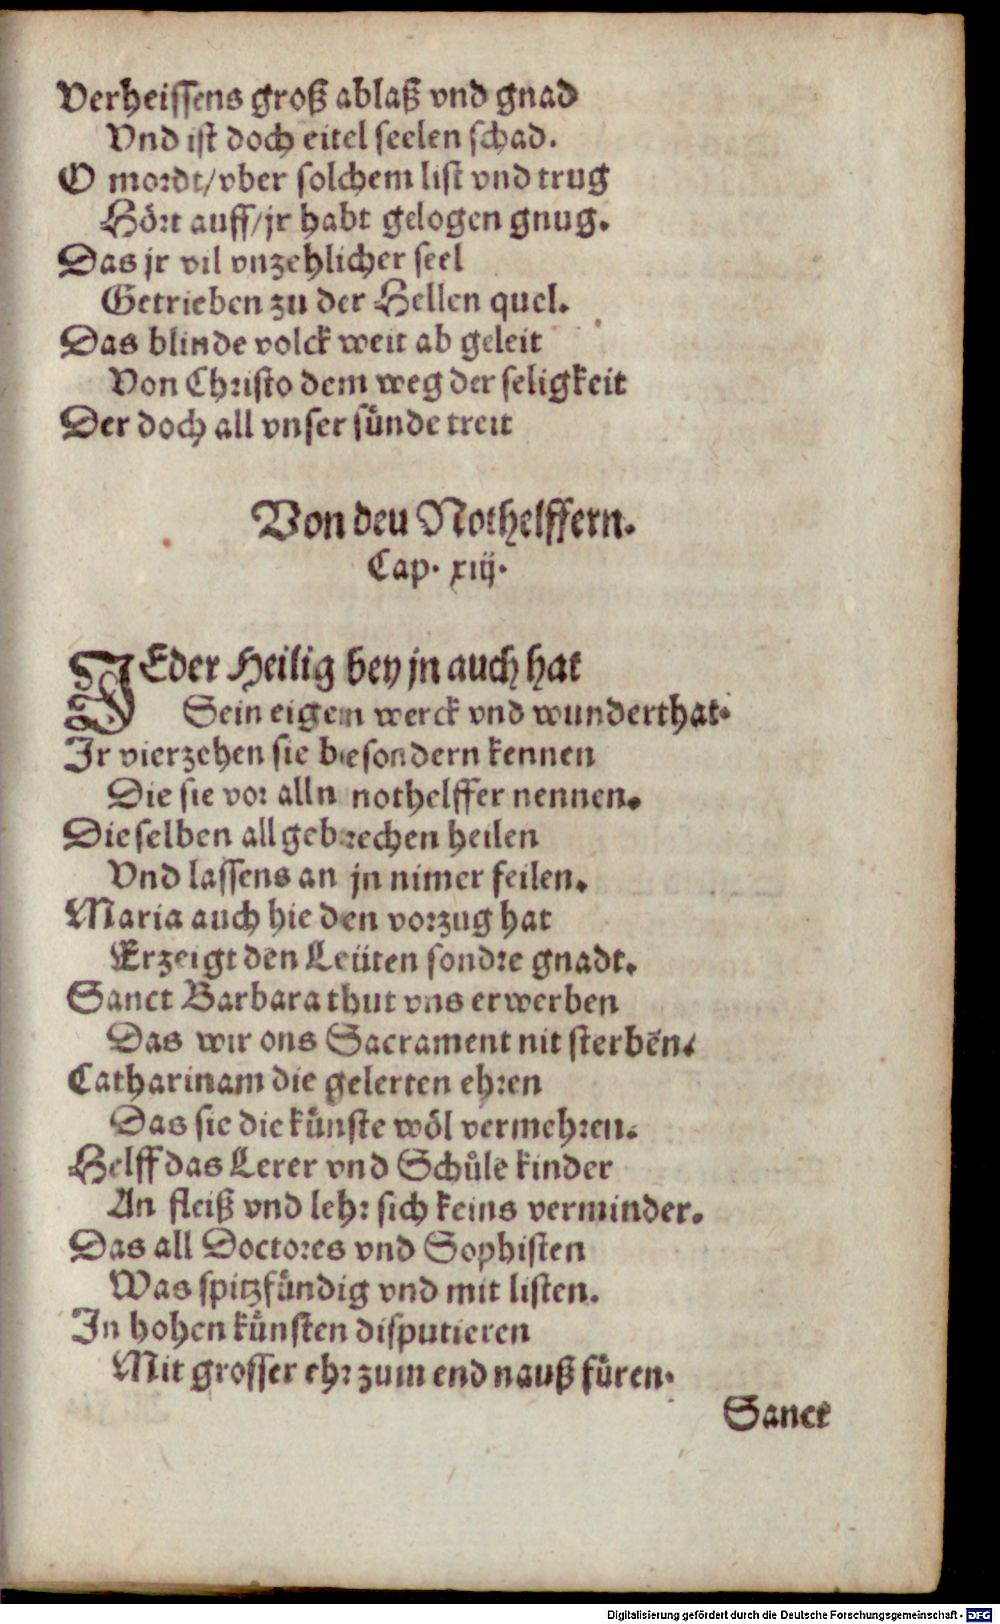 Verheissens groß ablaß vnd gnad
Vnd ist doch eitel seelen schad.
O mordt/vber solchem list vnd trug
Hört auff/jr habt gelogen gnug.
Das jr vil vnzehlicher seel
Getrieben zu der Hellen quel.
Das blinde volck weit ab geleit
Von Christo dem weg der seligkeit
Der doch all vnser sünde treit
Von deu Nothelffern.
Cap. xiij.
JEder Heilig bey jn auch hat
Sein eigem werck vnd wunderthat.
Jr vierzehen sie besondern kennen
Die sie vor alln nothelffer nennen.
Dieselben all gebrechen heilen
Vnd lassens an jn nimer feilen.
Maria auch hie den vorzug hat
Erzeigt den Leüten sondre gnadt.
Sanct Barbara thut vns erwerben
Das wir ons Sacrament nit sterbēn.
Catharinam die gelerten ehren
Das sie die künste wöl vermehren.
Helff das Lerer vnd Schůle kinder
An fleiß vnd lehr sich keins verminder.
Das all Doctores vnd Sophisten
Was spitzfündig vnd mit listen.
Jn hohen künsten disputieren
Mit grosser ehr zum end nauß füren.
Sanct
Digitalisierung gefördert durch die Deutsche Forschungsgemeinschaft - DFG